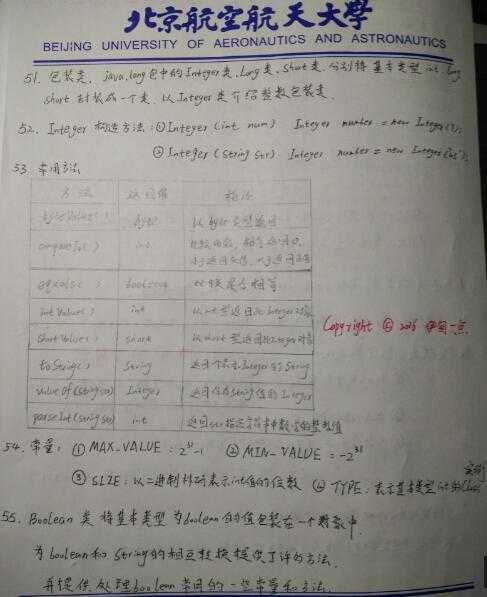 北京航空航天大學
BEIJING UNIVERSITY OF AERONAUTICS AND ASTRONAUTICS
51. 包装类. java.lang包中的Integer类, Long类, Short类, 分别将基本类型 int, long
short 封装成一个类. 以 Integer类介绍整数包装类.
52. Integer 构造方法: ① Integer (int num) Integer number = new Integer(7);
② Integer (String str) Integer number = new Integer("45");
53. 常用方法
方法 返回值 描述
byteValue() byte 以byte类型返回
compareTo() int 比较, 相等返回0,
小于返回负值, 大于返回正值
equals() boolean 比较是否相等
intValue() int 以int型返回此Integer对象
shortValue() short 以short型返回此Integer对象
toString() String 返回个表示Integer的String
valueOf(String str) Integer 返回保存String值的Integer
parseInt(String str) int 返回str指定字符串中数字的整数值
Copyright © 一点
54. 常量: ① MAX_VALUE = 2³¹-1 ② MIN_VALUE = -2³¹
③ SIZE: 以二进制补码表示int值的位数 ④ TYPE: 表示基本类型int的Class
实例
55. Boolean 类 将基本类型为boolean的值包装在一个对象中.
为boolean和String的相互转换提供了许多方法.
并提供处理boolean常用的一些常量和方法.